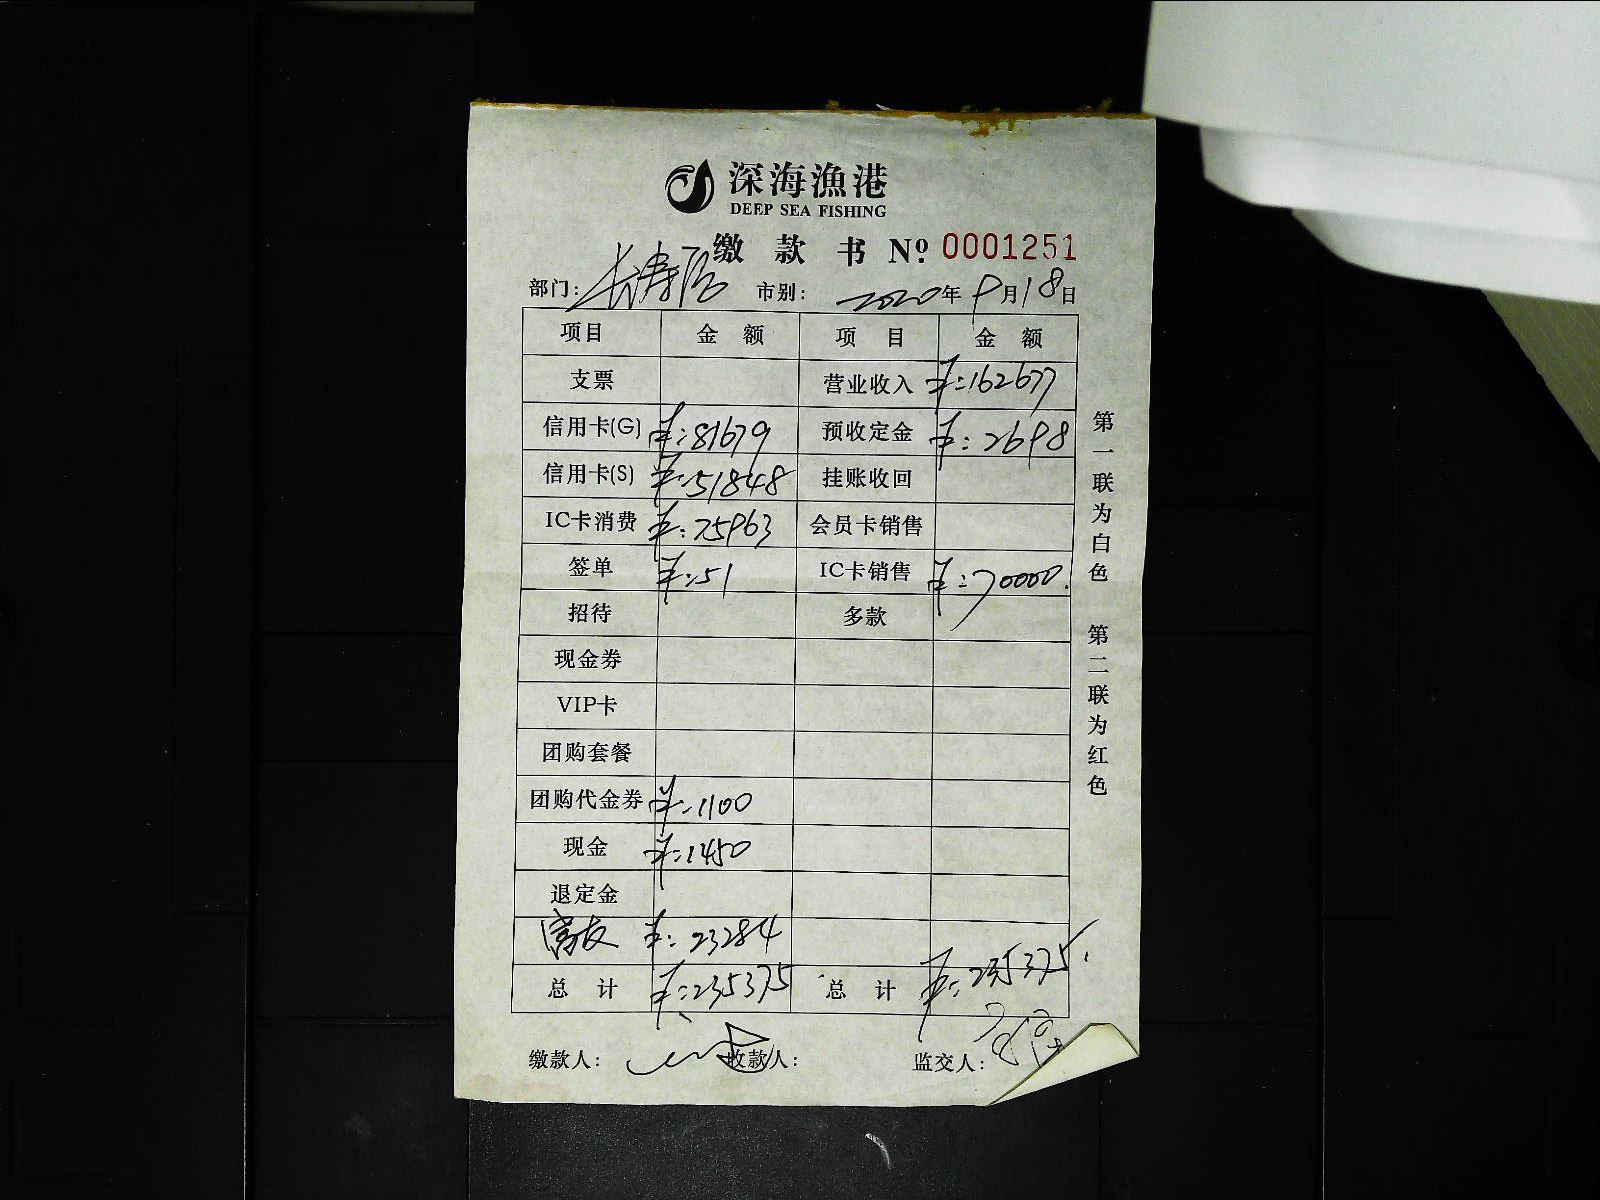 深海漁港
DEEP SEA FISHING
缴款书 № 0001251
部门：长寿路 市别： 2020年9月18日
项目 金额 项目 金额
支票 营业收入 ¥:162677
信用卡(G) ¥:81679 预收定金 ¥:2698
信用卡(S) ¥:51848 挂账收回
IC卡消费 ¥:75963 会员卡销售
签单 ¥:51 IC卡销售 ¥:70000.
招待 多款
现金券
VIP卡
团购套餐
团购代金券 ¥:1100
现金 ¥:1450
退定金
富友 ¥:23284
总计 ¥:235375 总计 ¥:235375.
缴款人： 收款人： 监交人：
第一联为白色 第二联为红色